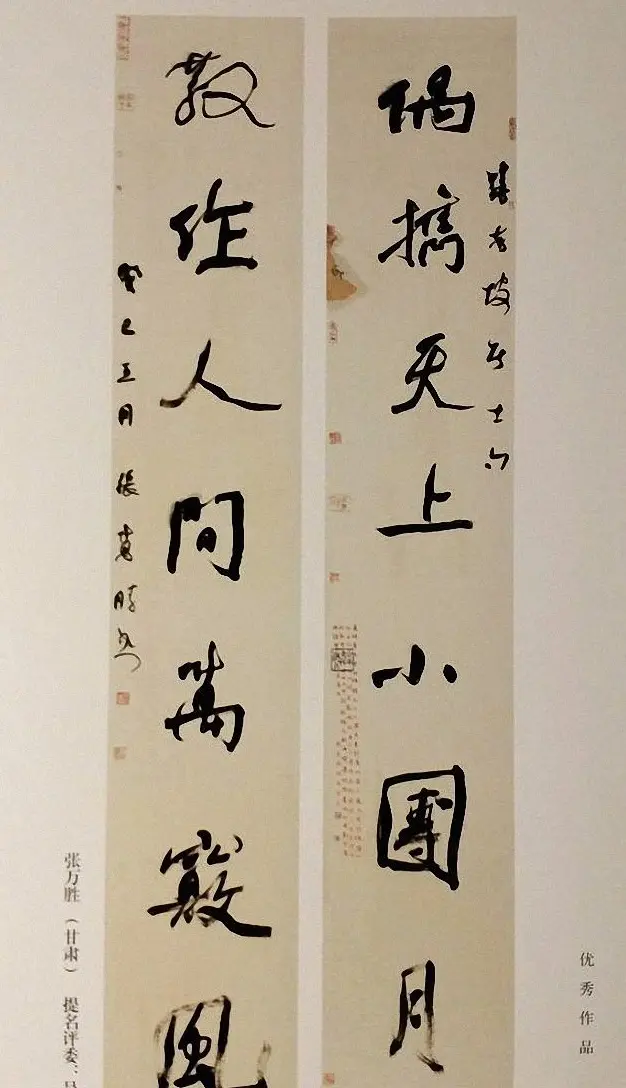 优秀作品
集老坡居士句
偶攜天上小團月
散作人間萬竅風
癸巳五月 張萬勝書
张万胜（甘肃） 提名评委：